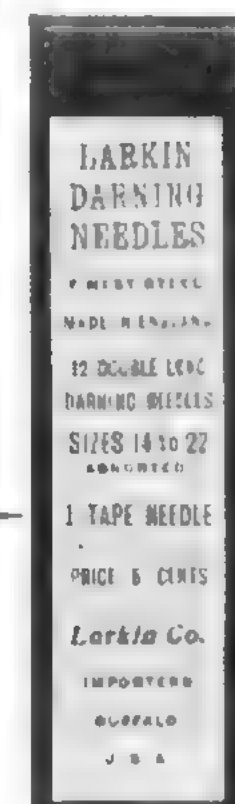 LARKIN
DARNING
NEEDLES
FINEST STEEL
MADE IN ENGLAND
12 DOUBLE LONG
DARNING NEEDLES
SIZES 14 to 22
ASSORTED
1 TAPE NEEDLE
PRICE 5 CENTS
Larkin Co.
IMPORTERS
BUFFALO
U S A